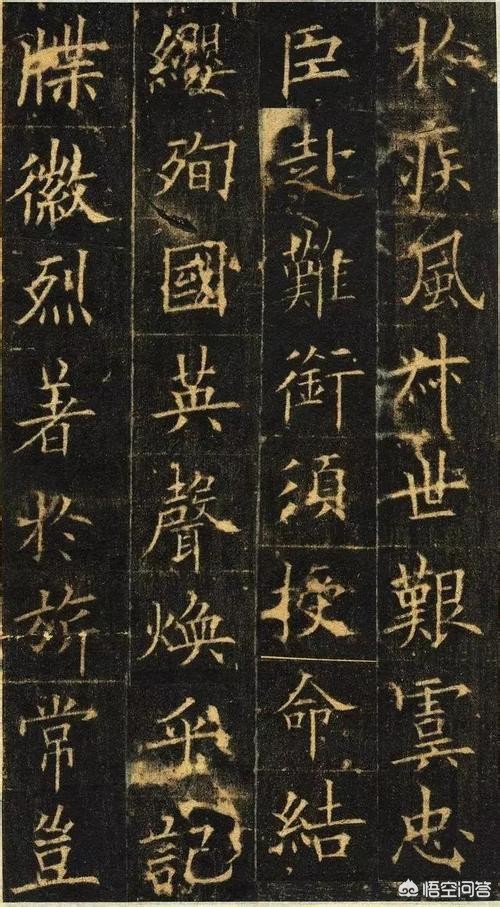 於疾風叔世艱虞忠
臣赴難銜須授命結
纓殉國英聲煥乎記
牒徽烈著於旂常豈
悟空问答